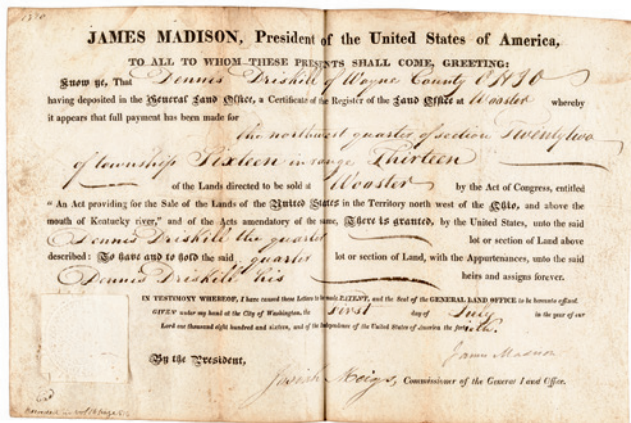 JAMES MADISON, President of the United States of America,
TO ALL TO WHOM THESE PRESENTS SHALL COME, GREETING:
Know ye, That Dennis Driskill of Wayne County OHIO
having deposited in the General Land Office, a Certificate of the Register of the Land Office at Wooster whereby
it appears that full payment has been made for
the northwest quarter of section Twenty two
of township Sixteen in range Thirteen
of the Lands directed to be sold at Wooster by the Act of Congress, entitled
"An Act providing for the Sale of the Lands of the United States in the Territory north west of the Ohio, and above the
mouth of Kentucky river," and of the Acts amendatory of the same, There is granted, by the United States, unto the said
Dennis Driskill the quarter lot or section of Land above
described: To have and to hold the said quarter lot or section of Land, with the Appurtenances, unto the said
Dennis Driskill his heirs and assigns forever.
IN TESTIMONY WHEREOF, I have caused these Letters to be made PATENT, and the Seal of the GENERAL LAND OFFICE to be hereunto affixed.
GIVEN under my hand at the City of Washington, the First day of July in the year of our
Lord one thousand eight hundred and sixteen, and of the Independence of the United States of America the
James Madison
By the President,
Josiah Meigs, Commissioner of the General Land Office.